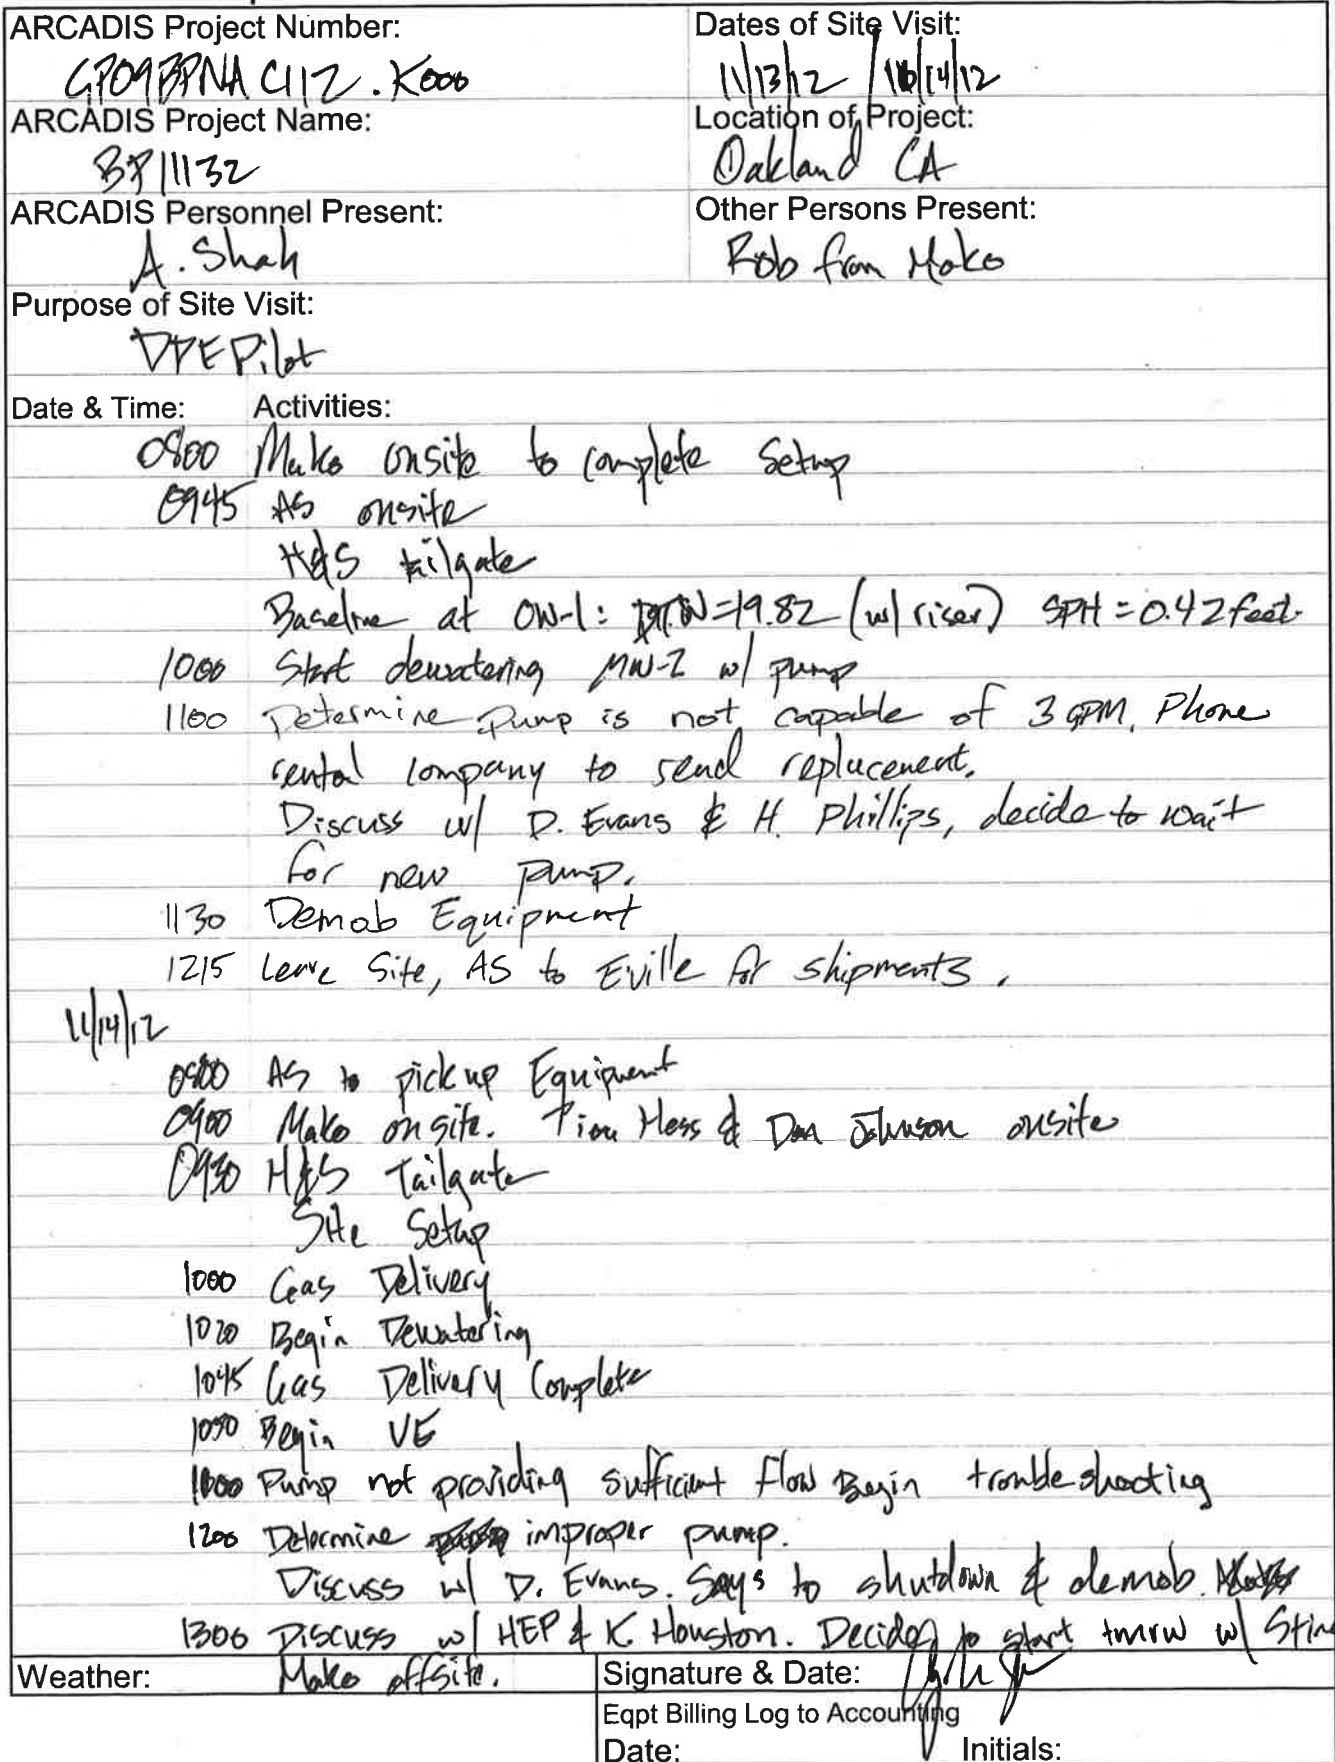 ARCADIS Project Number: Dates of Site Visit:
GP09BPNA C112.K000 11/13/12 / 11/14/12
ARCADIS Project Name: Location of Project:
BP 11132 Oakland CA
ARCADIS Personnel Present: Other Persons Present:
A. Shah Rob from Mako
Purpose of Site Visit:
DPE Pilot
Date & Time: Activities:
0800 Mako onsite to complete Setup
0945 AS onsite
H&S tailgate
Baseline at OW-1: DTW=19.82 (w/ riser) SPH = 0.42 feet.
1000 Start dewatering MW-2 w/ pump
1100 Determine pump is not capable of 3 GPM. Phone
rental company to send replacement.
Discuss w/ D. Evans & H. Phillips, decide to wait
for new pump.
1130 Demob Equipment
1215 Leave Site, AS to Eville for shipments.
11/14/12
0800 AS to pick up Equipment
0900 Mako onsite. Hess & Johnson onsite
0930 H&S Tailgate
Site Setup
1000 Gas Delivery
1020 Begin Dewatering
1045 Gas Delivery Complete
1050 Begin VE
Pump not providing sufficient flow Begin troubleshooting
1200 Determine improper pump.
Discuss w/ D. Evans. Says to shutdown & demob.
1300 Discuss w/ HEP & K. Houston. Decided to start tmrw w/
Weather: Mako offsite. Signature & Date:
Eqpt Billing Log to Accounting
Date: Initials: